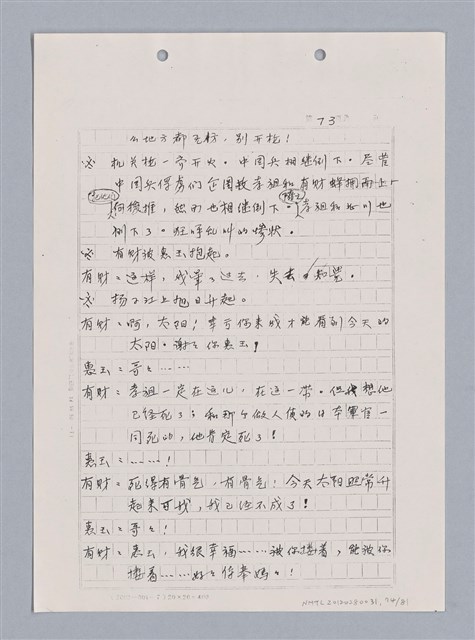 73
的地方都飞射，别开枪！
※ 机关枪一齐开火。中国兵相继倒下。尽管
中国兵俘虏们企图救孝祖和有财蜂拥而上
何梭推，然而也相继倒下。孝祖和长川也
倒下了。狂呼乱叫的惨状。
※ 有财被惠玉抱起。
有财：这样，我晕了过去，失去了知觉。
※ 扬子江上旭日升起。
有财：啊，太阳！幸亏你来我才能看到今天的
太阳。谢谢你惠玉！
惠玉：哥哥……
有财：孝祖一定在这儿，在这一带。但我想他
已经死了；和那个做人质的日本軍官一
同死的，他肯定死了！
惠玉：……！
有财：死得有骨气，有骨气！今天太阳照常升
起来可我，我已经不成了！
惠玉：哥哥！
有财：惠玉，我很幸福……被你搂着，能被你
搂着……好好侍奉妈妈！